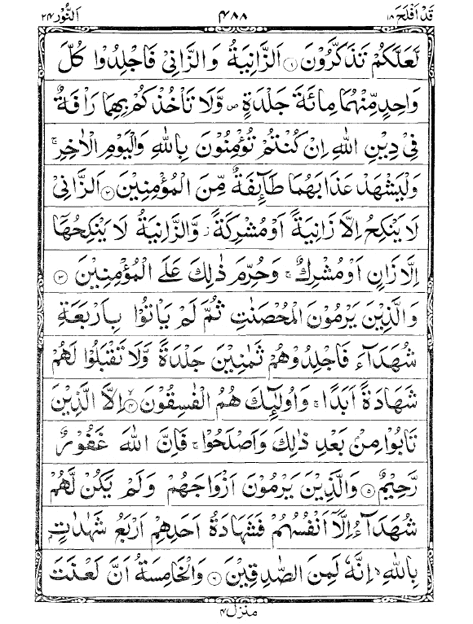 قد افلح ١٨ ٤٨٨ النور ٢٤
لَعَلَّكُمْ تَذَكَّرُوْنَ ۝١ اَلزَّانِيَةُ وَالزَّانِيْ فَاجْلِدُوْا كُلَّ
وَاحِدٍ مِّنْهُمَا مِائَةَ جَلْدَةٍ ۪ وَّلَا تَاْخُذْكُمْ بِهِمَا رَاْفَةٌ
فِيْ دِيْنِ اللّٰهِ اِنْ كُنْتُمْ تُؤْمِنُوْنَ بِاللّٰهِ وَالْيَوْمِ الْاٰخِرِ ۚ
وَلْيَشْهَدْ عَذَابَهُمَا طَآئِفَةٌ مِّنَ الْمُؤْمِنِيْنَ ۝٢ اَلزَّانِيْ
لَا يَنْكِحُ اِلَّا زَانِيَةً اَوْ مُشْرِكَةً ۡ وَّالزَّانِيَةُ لَا يَنْكِحُهَاۤ
اِلَّا زَانٍ اَوْ مُشْرِكٌ ۚ وَحُرِّمَ ذٰلِكَ عَلَى الْمُؤْمِنِيْنَ ۝٣
وَالَّذِيْنَ يَرْمُوْنَ الْمُحْصَنٰتِ ثُمَّ لَمْ يَاْتُوْا بِاَرْبَعَةِ
شُهَدَآءَ فَاجْلِدُوْهُمْ ثَمٰنِيْنَ جَلْدَةً وَّلَا تَقْبَلُوْا لَهُمْ
شَهَادَةً اَبَدًا ۚ وَاُولٰٓئِكَ هُمُ الْفٰسِقُوْنَ ۝٤ اِلَّا الَّذِيْنَ
تَابُوْا مِنْ بَعْدِ ذٰلِكَ وَاَصْلَحُوْا ۚ فَاِنَّ اللّٰهَ غَفُوْرٌ
رَّحِيْمٌ ۝٥ وَالَّذِيْنَ يَرْمُوْنَ اَزْوَاجَهُمْ وَلَمْ يَكُنْ لَّهُمْ
شُهَدَآءُ اِلَّاۤ اَنْفُسُهُمْ فَشَهَادَةُ اَحَدِهِمْ اَرْبَعُ شَهٰدٰتٍۭ
بِاللّٰهِ ۙ اِنَّهٗ لَمِنَ الصّٰدِقِيْنَ ۝٦ وَالْخَامِسَةُ اَنَّ لَعْنَتَ
منزل ٤